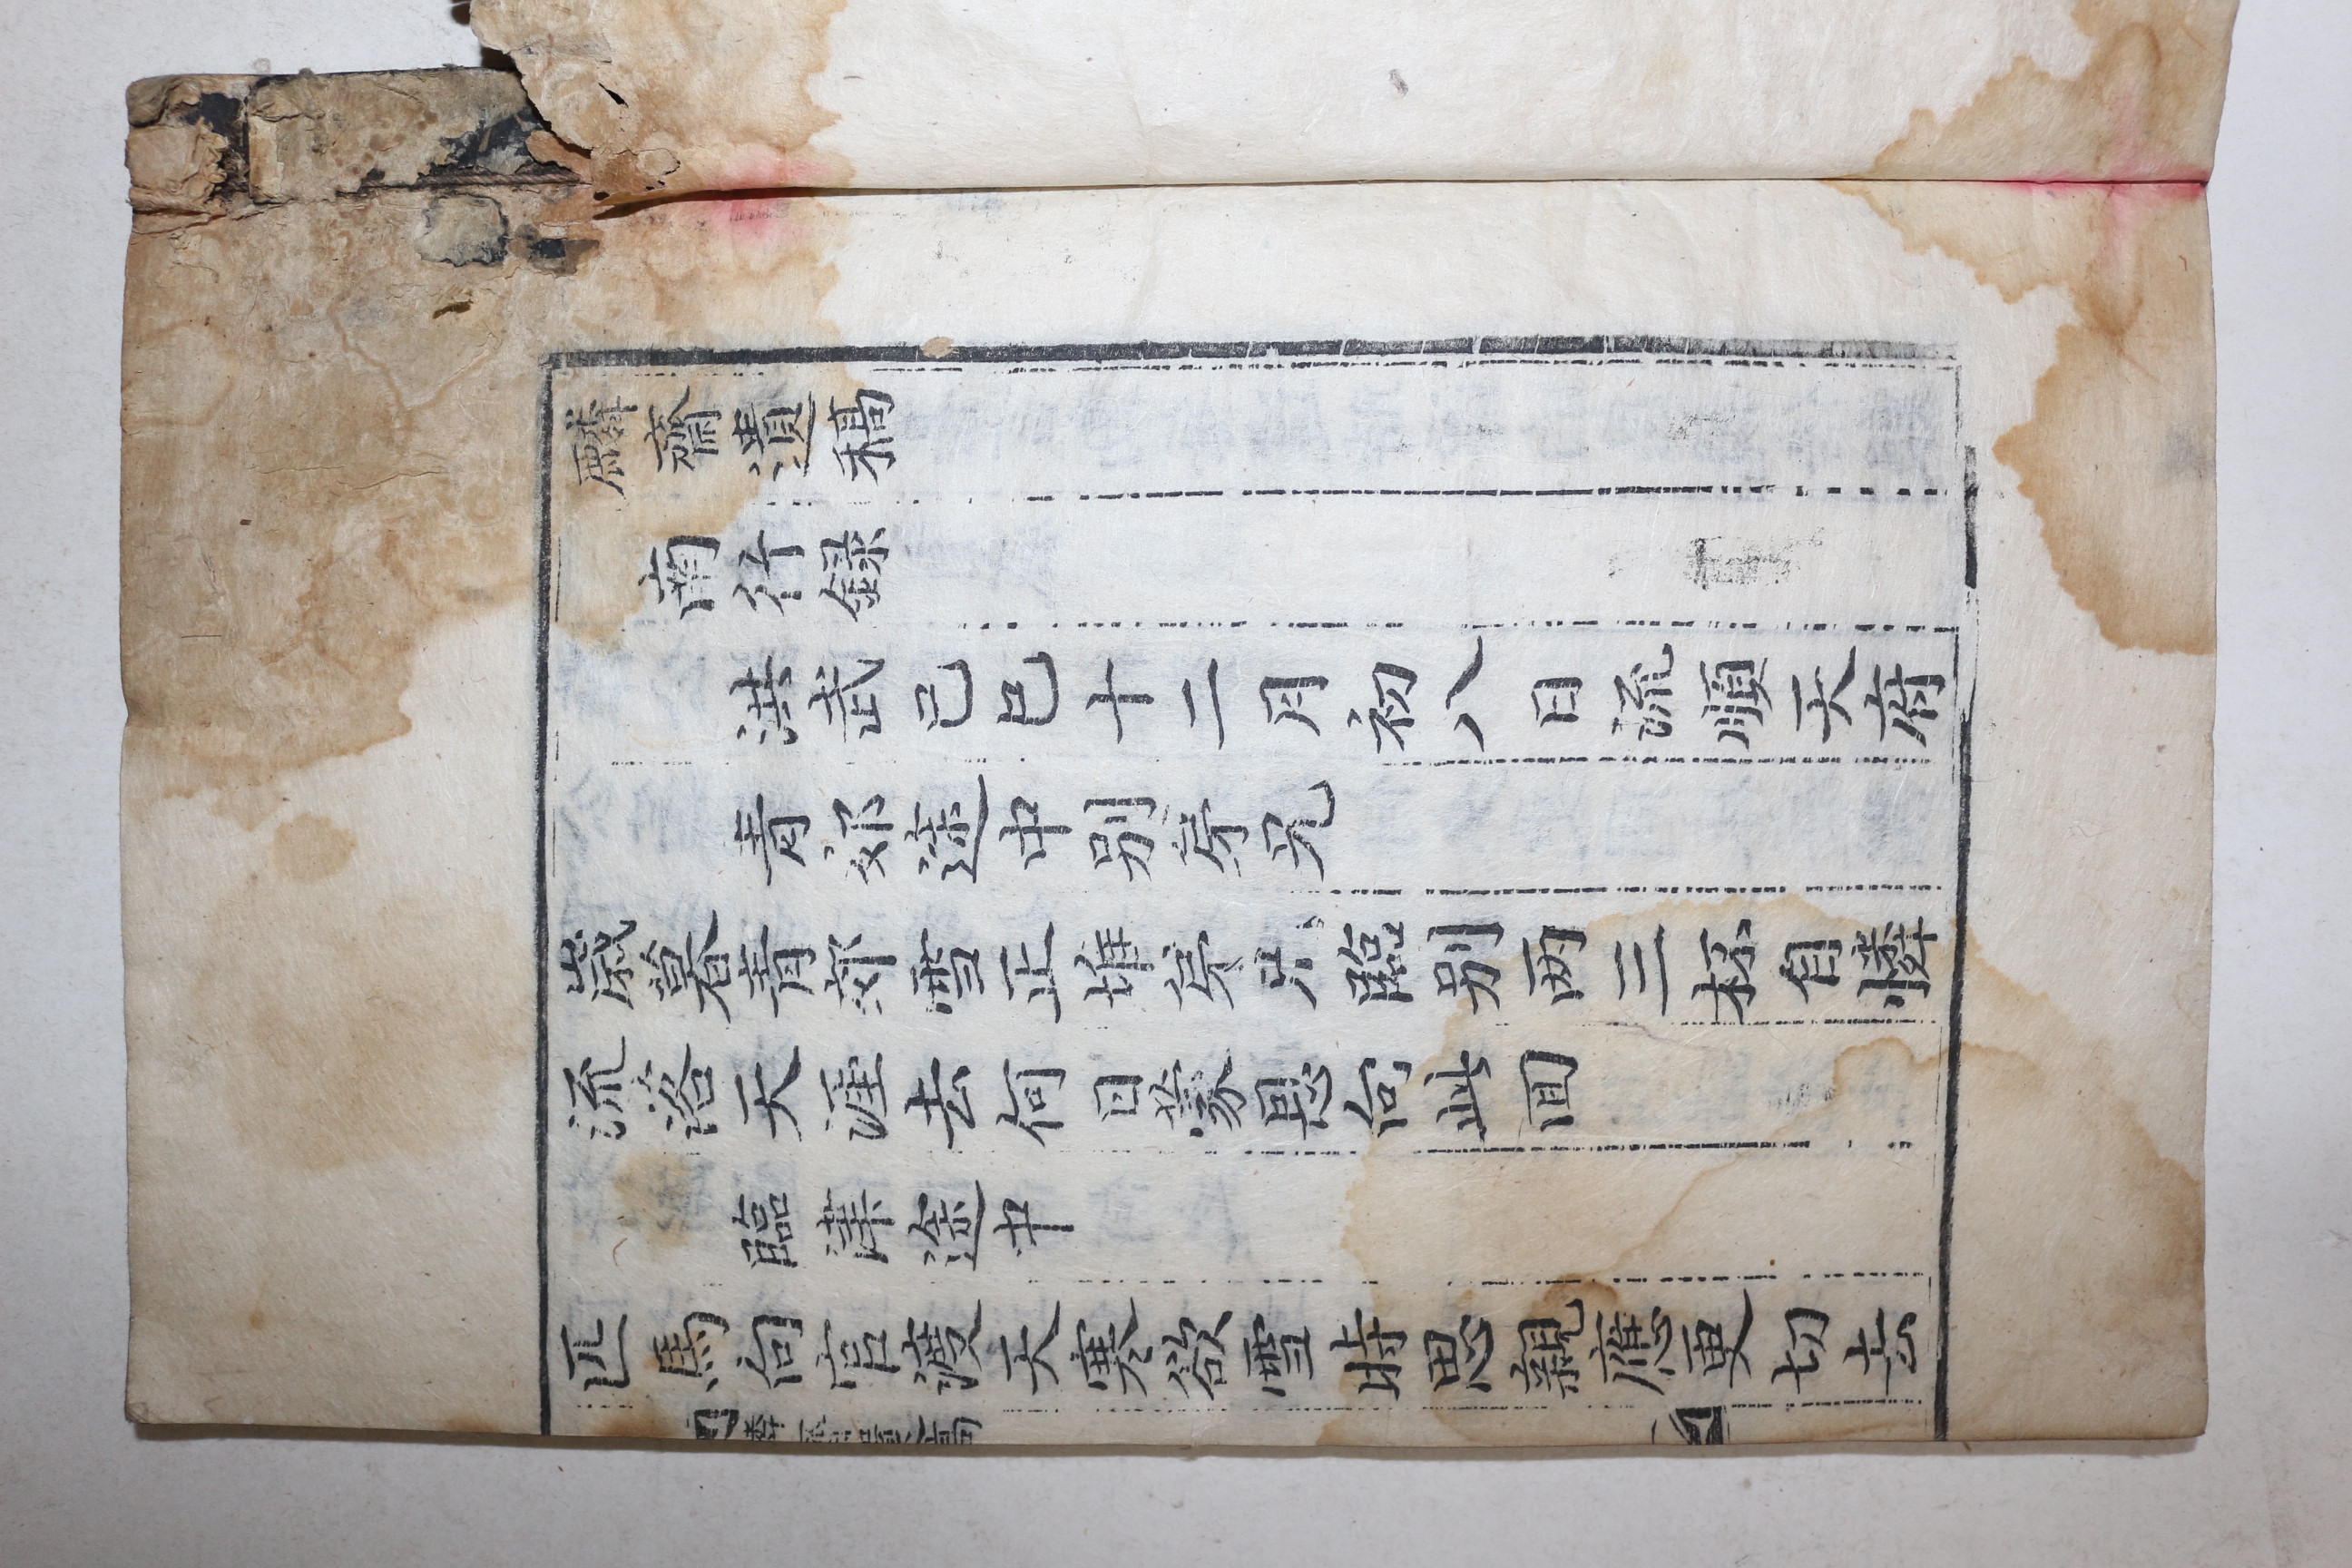 麟齋遺稿
南行錄
洪武己巳十二月初八日流順天府
青郊途中別弟兄
歲暮青郊雪正堆弟兄臨別兩三杯自憐
流落天涯去何日蒙恩向此回
臨津途中
匹馬向官渡天寒欲雪時思親應更切去